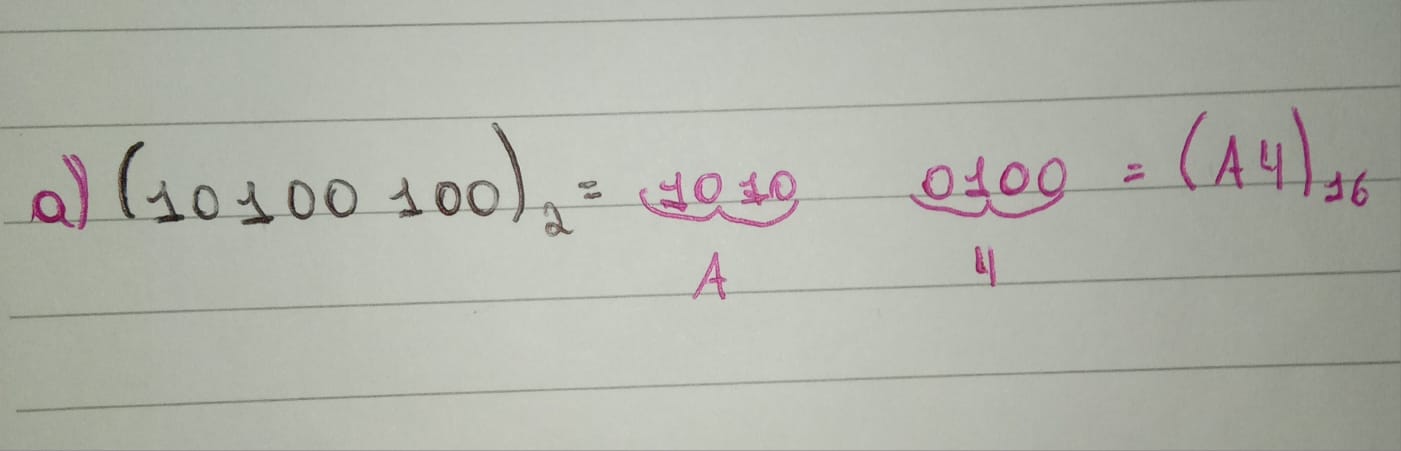 a) (10100 100)₂ = 1010 0100 = (A4)₁₆
A 4